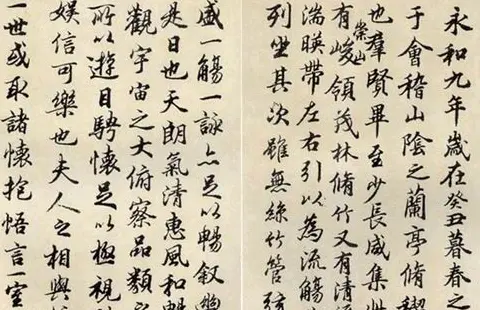 永和九年歲在癸丑暮春之
于會稽山陰之蘭亭脩稧
也羣賢畢至少長咸集此
有崇山峻領茂林脩竹又有清
湍暎帶左右引以為流觴
列坐其次雖無絲竹管弦
盛一觴一詠亦足以暢敘幽
是日也天朗氣清惠風和暢
觀宇宙之大俯察品類之
所以遊目騁懷足以極視
娛信可樂也夫人之相與
一世或取諸懷抱悟言一室